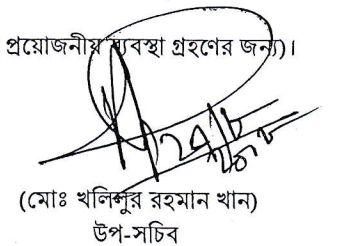 প্রয়োজনীয় ব্যবস্থা গ্রহণের জন্য)।
(মোঃ খলিলুর রহমান খান)
উপ-সচিব